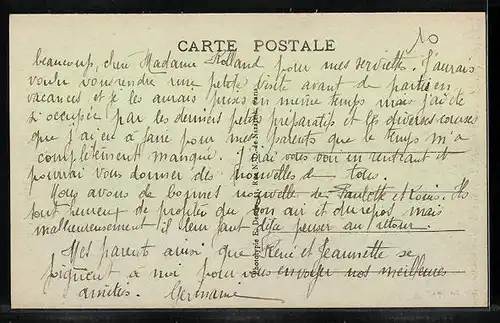 10
CARTE POSTALE
beaucoup, chère Madame Rolland pour mes serviettes. J'aurais
voulu vous rendre une petite visite avant de partir en
vacances et je les aurais prises en même temps mais j'ai été
si occupée par les derniers petits préparatifs et les diverses courses
que j'ai eu à faire pour mes parents que le temps m'a
complètement manqué. J'irai vous voir en rentrant et
pourrai vous donner des nouvelles de tous.
Nous avons de bonnes nouvelles de Paulette et Ils
sont heureux de profiter du bon air et du repos mais
malheureusement il leur faut déjà penser au retour.
Mes parents ainsi que René et Jeannette se
joignent à moi pour vous envoyer nos meilleures
amitiés. Germaine
Phototypie E.